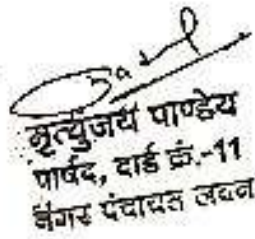 मृत्युंजय पाण्डेय
पार्षद, वार्ड क्रं.-11
नगर पंचायत लवन